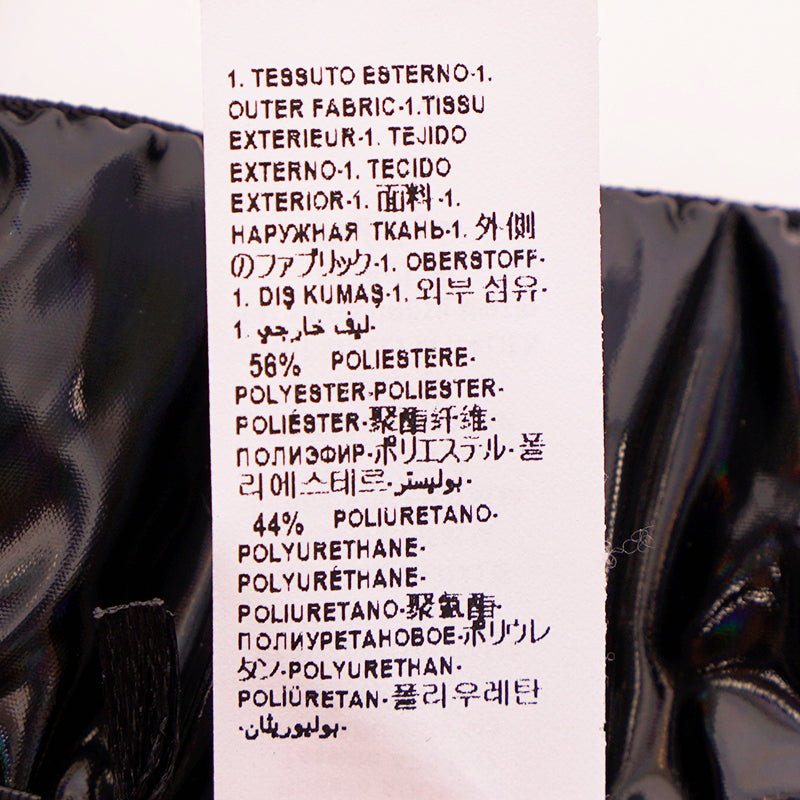 1. TESSUTO ESTERNO-1.
OUTER FABRIC-1.TISSU
EXTERIEUR-1. TEJIDO
EXTERNO-1. TECIDO
EXTERIOR-1. 面料-1.
НАРУЖНАЯ ТКАНЬ-1. 外側
のファブリック-1. OBERSTOFF-
1. DIŞ KUMAŞ-1. 외부 섬유-
1. ليف خارجي-
56% POLIESTERE-
POLYESTER-POLIESTER-
POLIÉSTER-聚酯纤维-
ПОЛИЭФИР-ポリエステル-폴
리에스테르-بوليستر-
44% POLIURETANO-
POLYURETHANE-
POLYURÉTHANE-
POLIURETANO-聚氨酯-
ПОЛИУРЕТАНОВОЕ-ポリウレ
タン-POLYURETHAN-
POLIÜRETAN-폴리우레탄
-بوليوريثان-